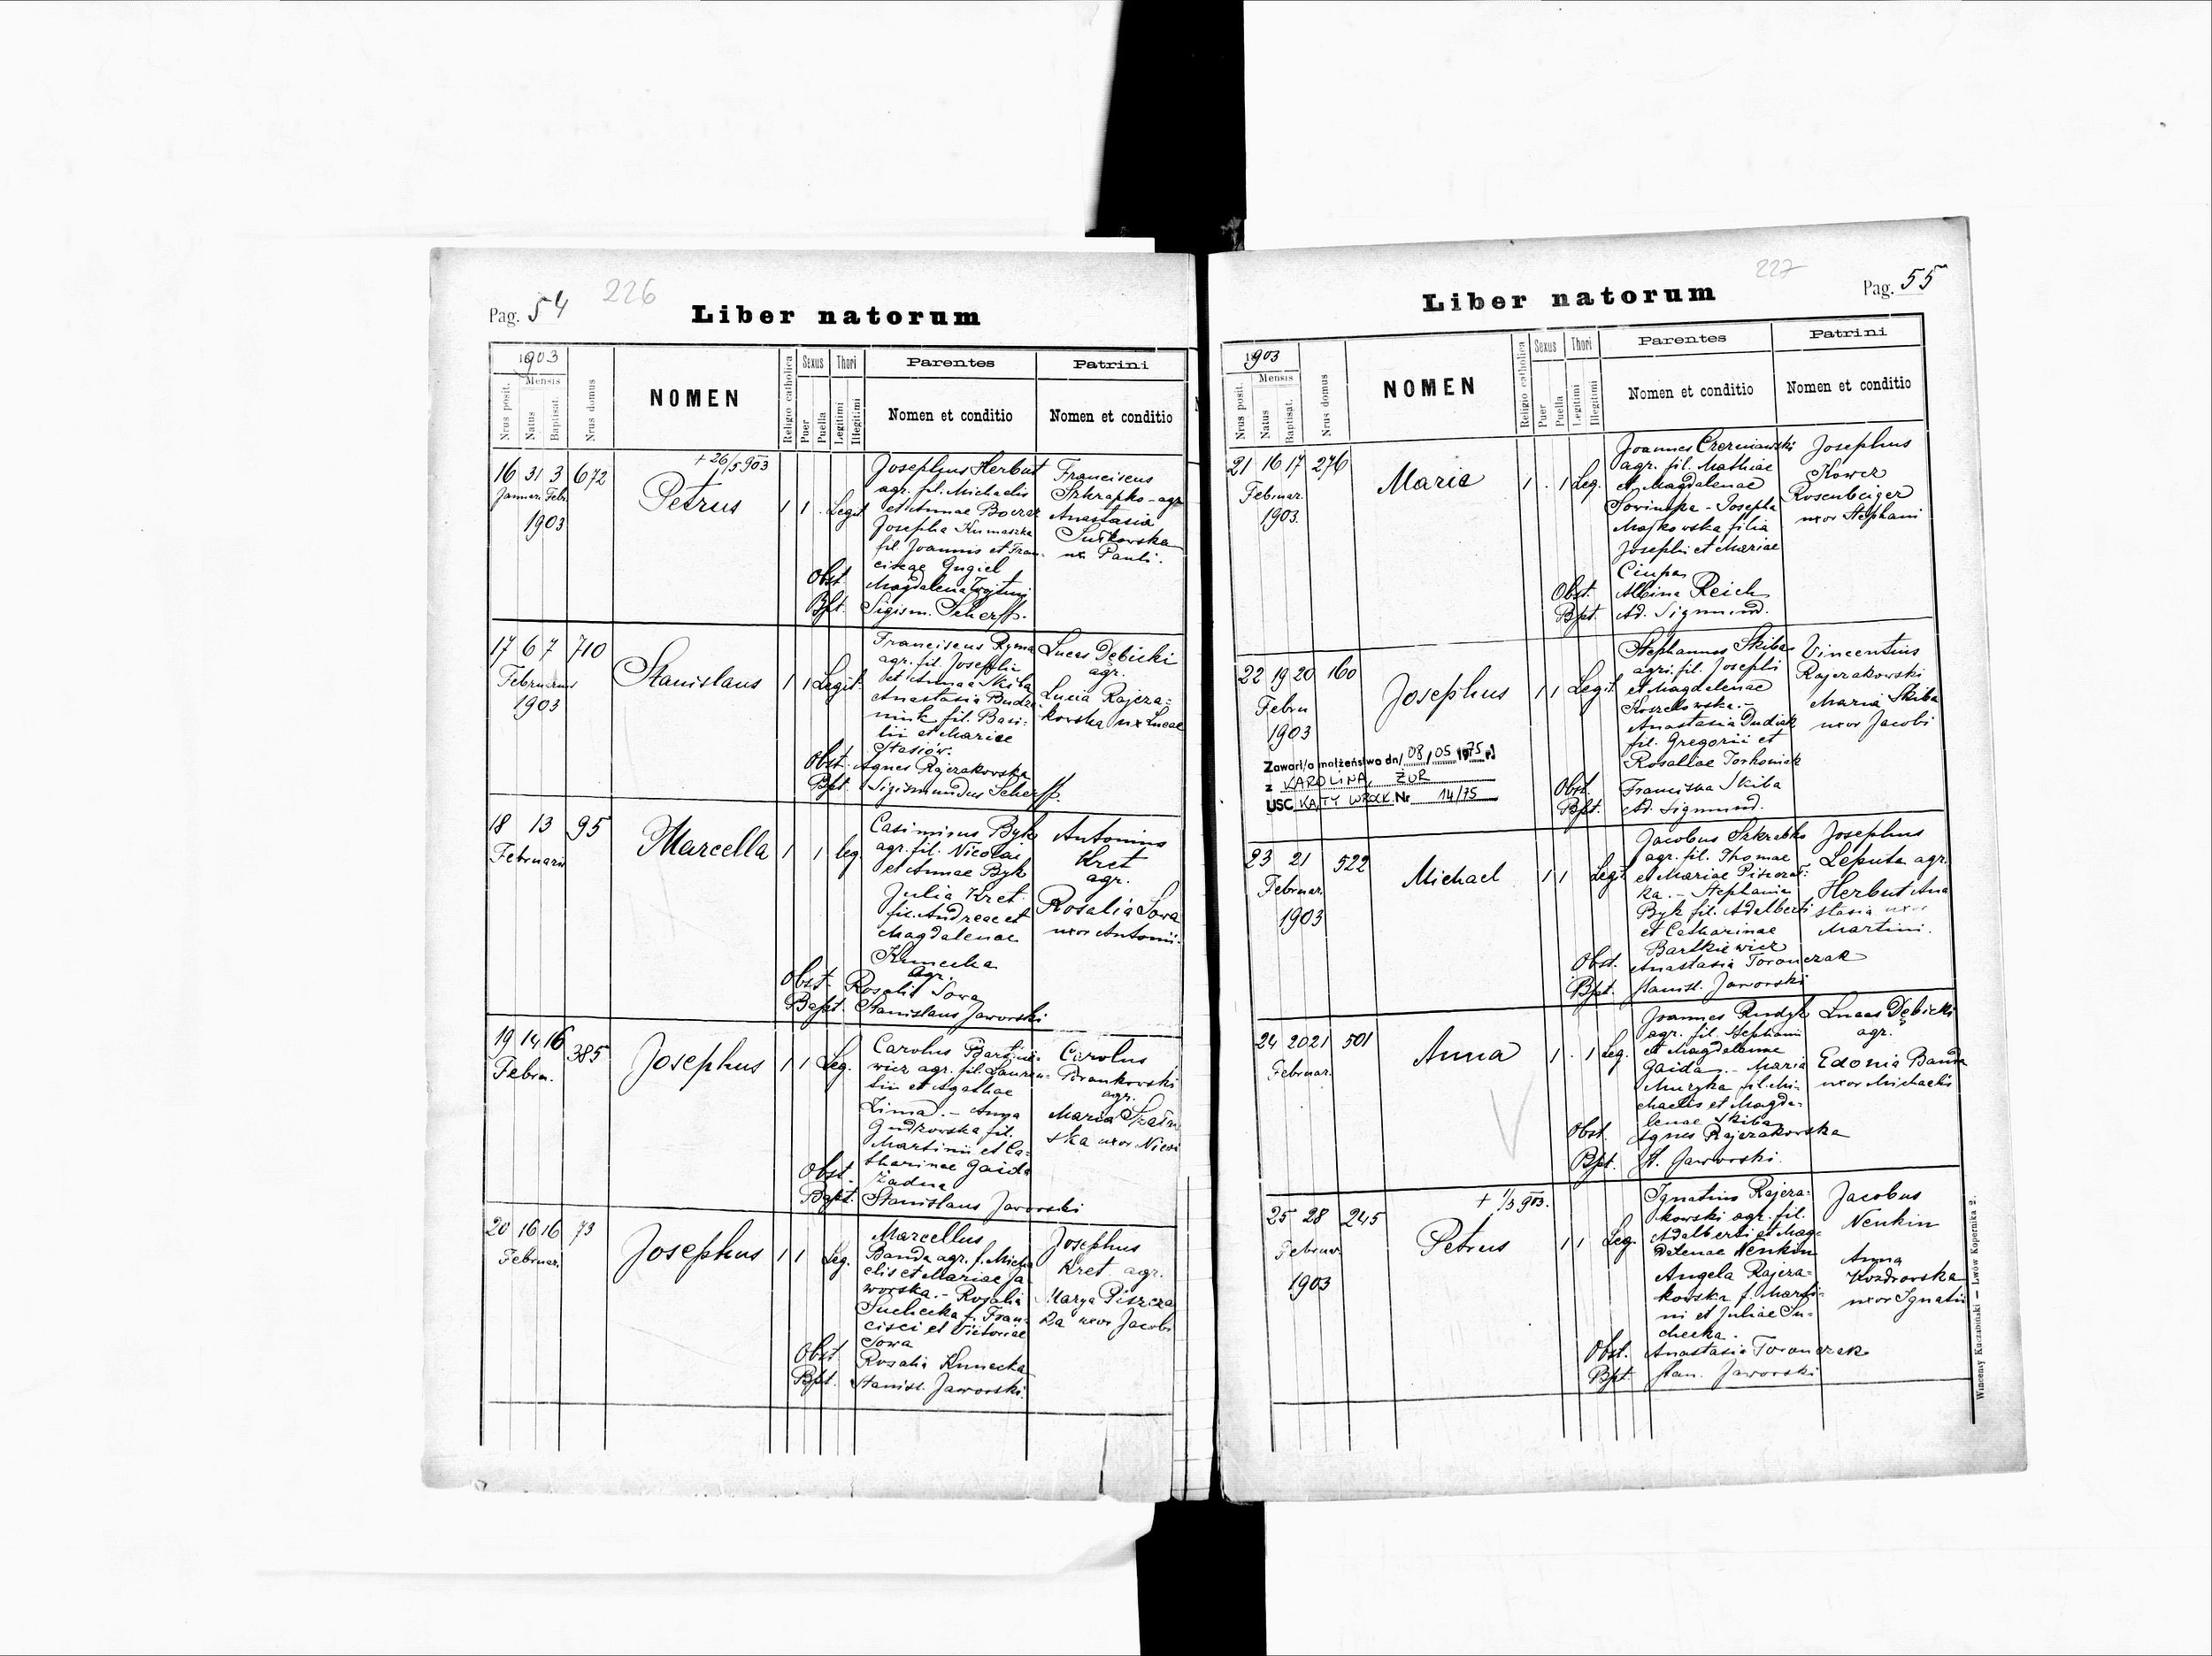 Pag. 54
226
Liber natorum
1903
Mensis
Nrus posit.
Natus
Baptisat.
Nrus domus
NOMEN
Religio catholica
Sexus
Puer
Puella
Thori
Legitimi
Illegitimi
Parentes
Nomen et conditio
Patrini
Nomen et conditio
16 31 3 672
Januar. Febr.
1903
+ 26/5 903
Petrus
1 1 Legit
Josephus Herbut
agr. fil. Michaelis
et Annae
Josepha
fil. Joannis et Fran-
ciscae Gugiel
Obst. Magdalena
Bpt. Sigism. Scherff.
Franciscus
Szkrapko - agr
Anastasia
ux. Pauli.
17 6 7 710
Februarius
1903
Stanislaus
1 1 Legit.
Franciscus Ryma
agr. fil. Josephi
et Annae Skiba
Anastasia Budzi
nink fil. Basi-
lii et Mariae
Stasiów.
Obst. Agnes Rajzakowska
Bpt. Sigismundus Scherff.
Lucas Dębicki
agr.
Lucia Rajcza=
kowska ux Lucae
18 13 95
Februarii
Marcella
1 1 leg.
Casimirus Byk
agr. fil. Nicolai
et Annae Byk
Julia Kret
fil. Andreae et
Magdalenae
Kunecka
agr.
Obst. Rosalia Sowa
Bapt. Stanislaus Jaworski
Antonius
Kret
agr.
Rosalia Sowa
uxor Antonii.
19 14 16 385
Febru.
Josephus
1 1 Leg.
Carolus
wicz agr. fil. Lauren-
tii et Agathae
Zima. - Anna
Gudkowska fil.
Martinii et Ca-
tharinae Gaida
Obst. Żadna
Bapt. Stanislaus Jaworski
Carolus
agr.
Maria
ska uxor
20 16 16 73
Februar.
Josephus
1 1 Leg.
Marcellus
Banda agr. f. Micha
elis et Mariae Ja
worska. - Rosalia
Suchecka f. Fran-
cisci et Victoriae
Sowa
Obst. Rosalia Kunecka
Bpt. Stanisl. Jaworski
Josephus
Kret agr.
Marya Piszcza
ka uxor Jacobi
227
Pag. 55
Liber natorum
1903
Mensis
Nrus posit.
Natus
Baptisat.
Nrus domus
NOMEN
Religio catholica
Sexus
Puer
Puella
Thori
Legitimi
Illegitimi
Parentes
Nomen et conditio
Patrini
Nomen et conditio
21 16 17 276
Februar.
1903.
Maria
1 . 1 Leg.
Joannes Czerniawski
agr. fil. Mathiae
et Magdalenae
Josepha
Majkowska filia
Josephi et Mariae
Ciupa
Obst. Albina Reich
Bpt. Ad. Sigmund.
Josephus
Kower
Rosenbeiger
uxor Stephani
22 19 20 160
Febru
1903
Josephus
1 1 Legit.
Zawarł/a małżeństwo dn/ 08/05 1975 r.
z KAROLINA ŻUR
USC KĄTY WROCŁ. Nr 14/75
Stephanus Skiba
agr. fil. Josephi
et Magdalenae
Koszelowska. -
Anastasia Dudiak
fil. Gregorii et
Rosaliae Torhoniak
Obst. Franciska Skiba
Bpt. Ad. Sigmund.
Vincentius
Rajczakowski
Maria Skiba
uxor Jacobi
23 21 522
Februar.
1903
Michael
1 1 Legit
Jacobus Szkrabko
agr. fil. Thomae
et Mariae
ka. - Stephania
Byk fil. Adalberti
et Catharinae
Bartkiewicz
Obst. Anastasia Toronczak
Bpt. Stanisl. Jaworski
Josephus
Leputa agr.
Herbut Ana
stasia uxor
Martini.
24 20 21 501
Februar.
Anna
1 . 1 Leg.
Joannes Rudyk
agr. fil. Stephani
et Magdalenae
Gaida. - Maria
Muzyka fil. Mi-
chaelis et Magda-
lenae Skiba
Obst. Agnes Rajczakowska
Bpt. St. Jaworski.
Lucas Dębicki
agr.
Edonia Banda
uxor Michaelis
25 28 245
Februar
1903
+ 1/3 903.
Petrus
1 1 Leg.
Ignatius Rajcza-
kowski agr. fil.
Adalberti et Mag-
dalenae Nenkin
Angela Rajcza-
kowska f. Marti-
ni et Juliae Su-
checka.
Obst. Anastasia Toronczak
Bpt. Stan. Jaworski
Jacobus
Nenkin
Anna
Kozdrowska
uxor Ignatii
Wincenty Kuczabiński — Lwów Kopernika 2.